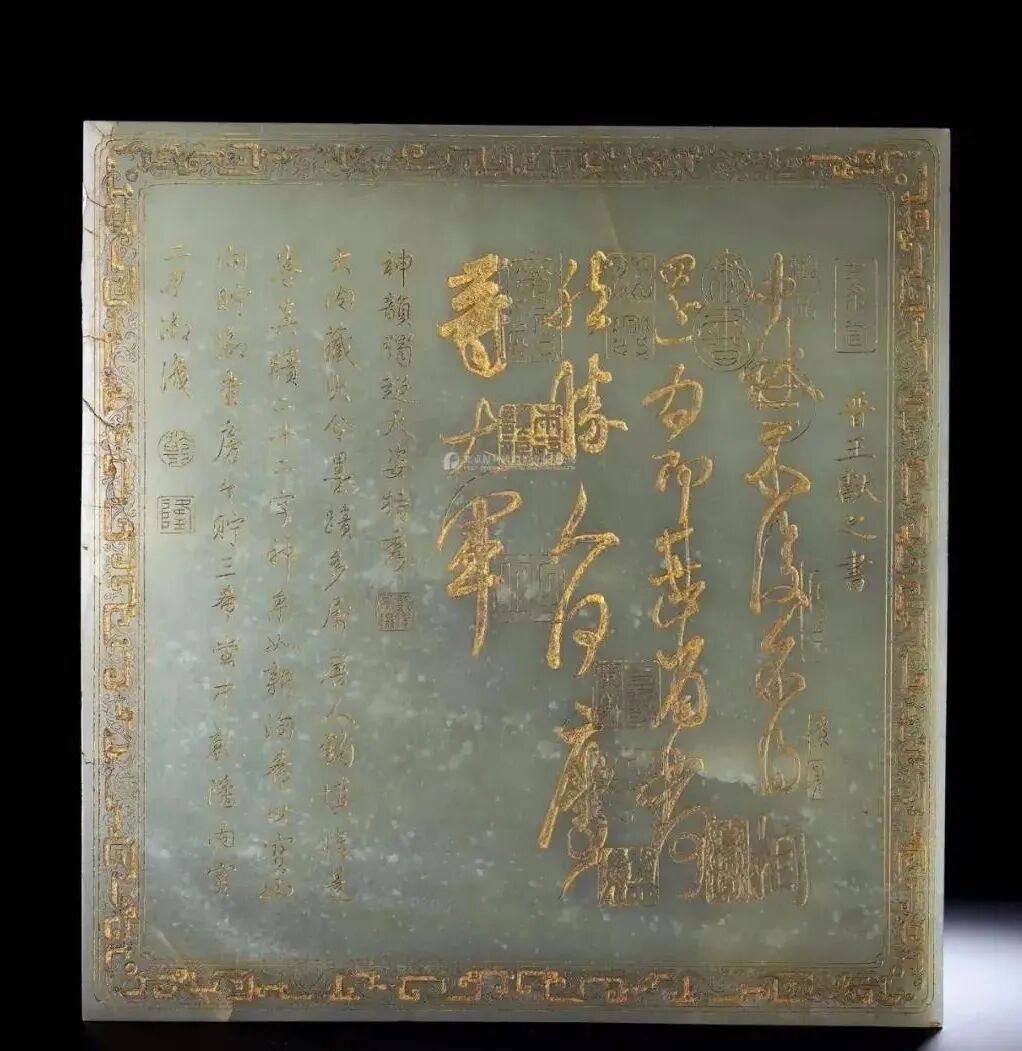 晋王獻之書
中秋不復不得相
還為即甚省如何
然勝人何慶
等大軍
神韻獨超天姿特秀
大內藏大令墨蹟多屬唐人鈎填惟是
卷真蹟二十二字神采如新洵希世寶也
向貯御書房今貯三希堂中乾隆丙寅
二月御識
隆